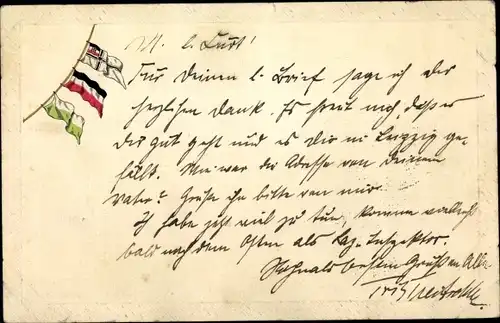 M. l. Kurt!
Für Deinen l. Brief sage ich Dir
herzlichen Dank. Es freut mich, daß es
dir gut geht und es Dir in Leipzig ge-
fällt. Wie war die Adresse von Deinem
Vater? Grüße ihn bitte von mir.
Ich habe jetzt viel zu tun, komme vielleicht
bald nach dem Osten als Laz. Inspektor.
Nochmals besten Gruß an Alle
Fritz